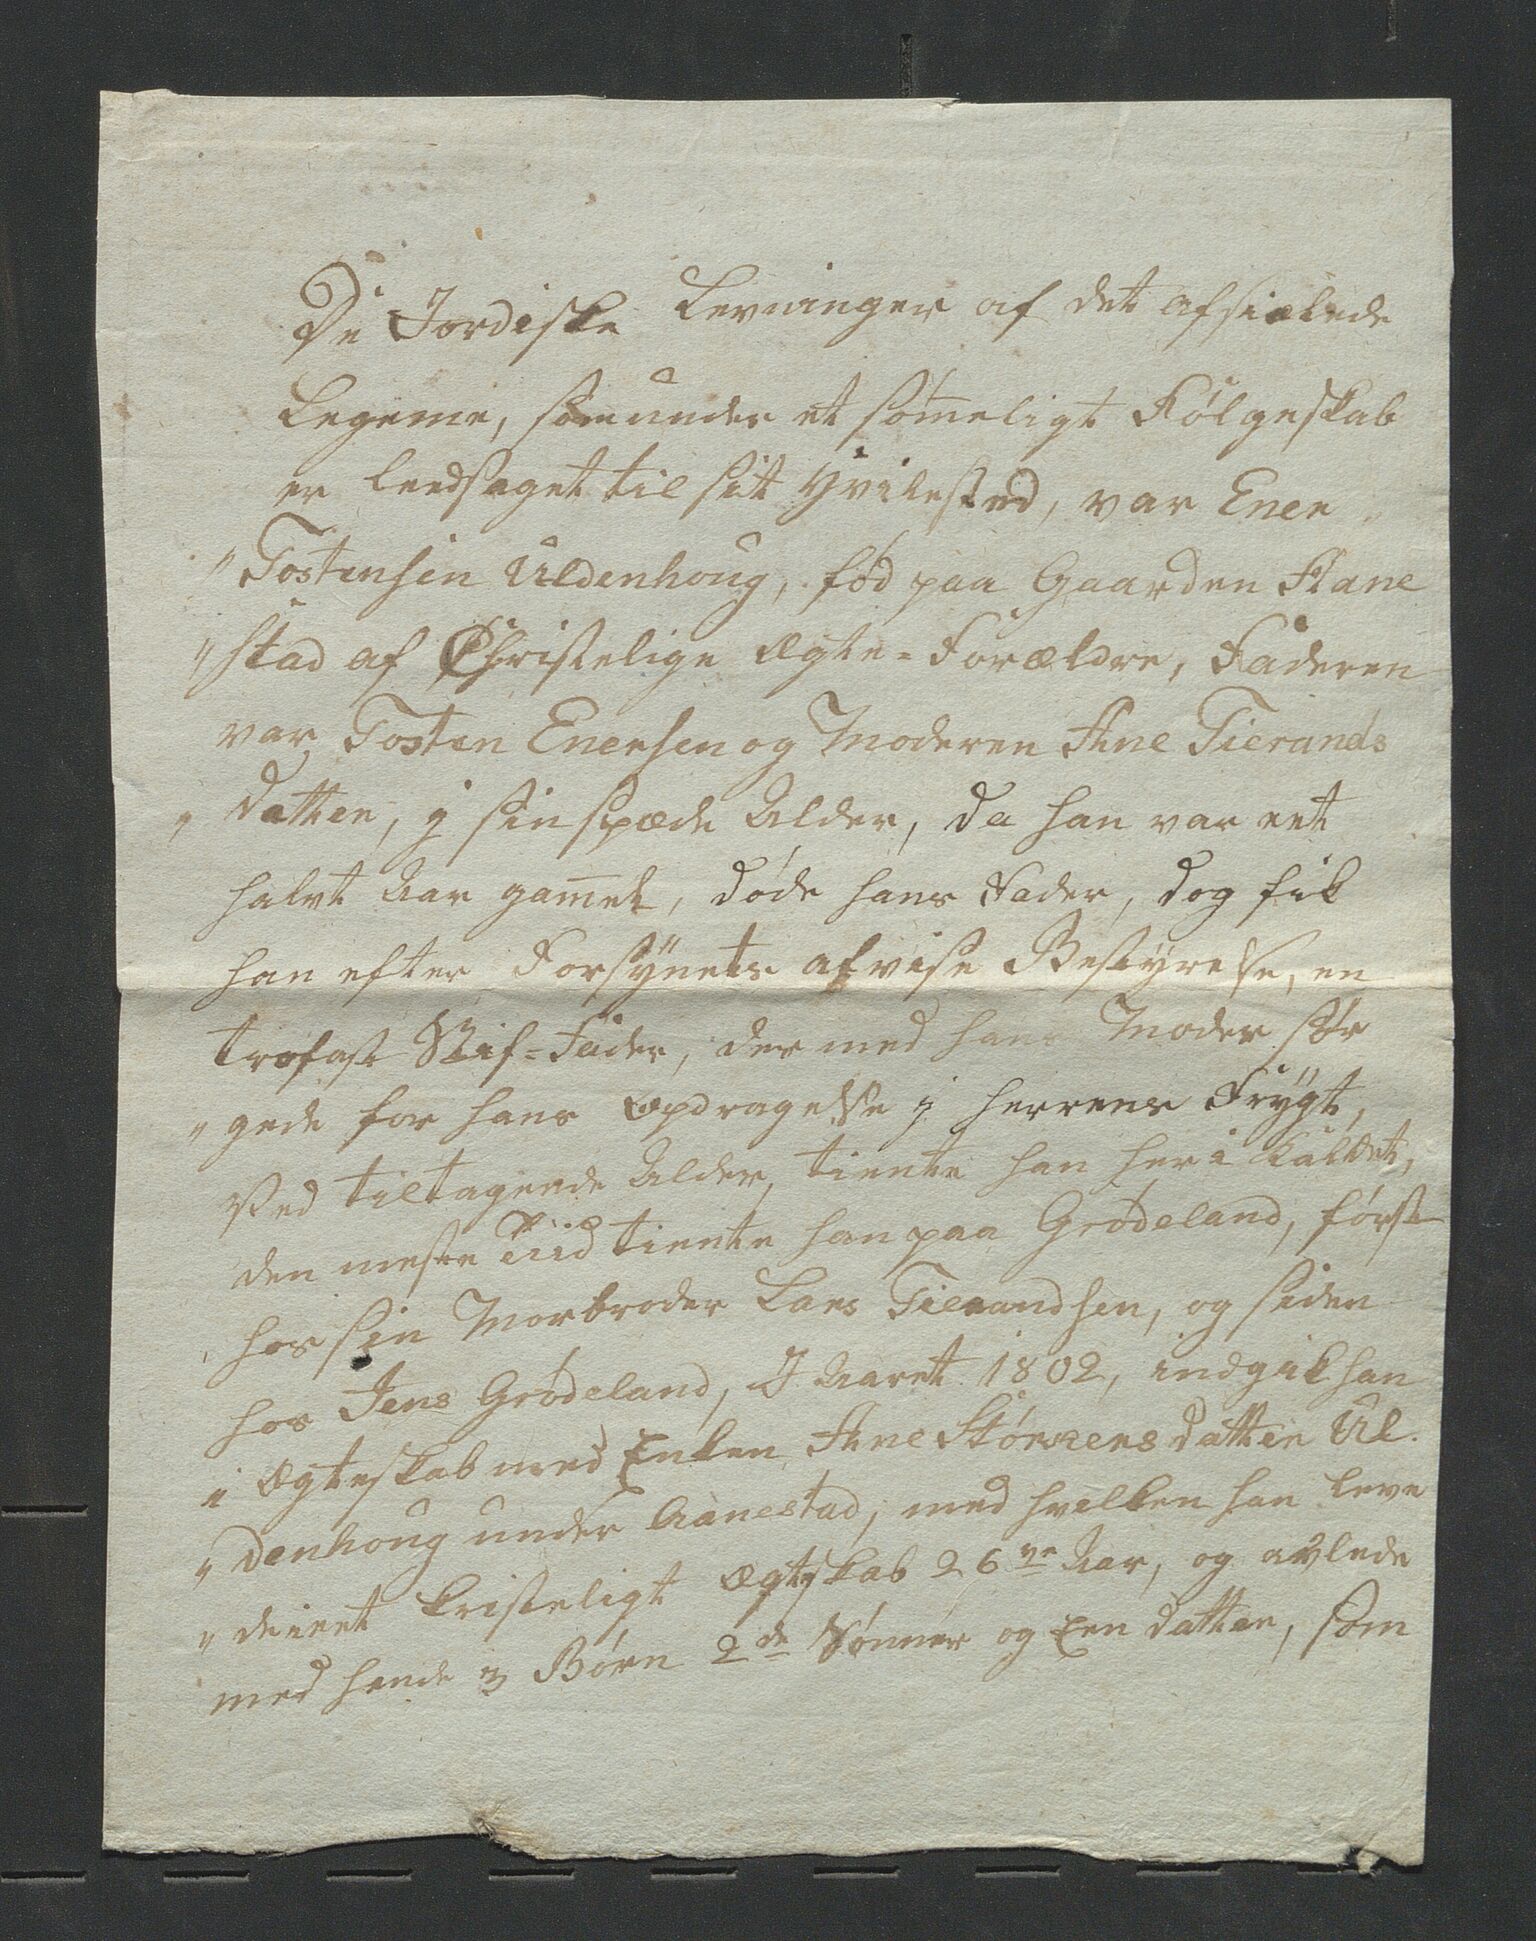 De Jordiske Levninger af det afsiælede
Legeme, som under et sømeligt Følgeskab
er leedsaget til sit Hvilested, var Ener
"Tostensen Uldenhoug, fød paa Gaarden Aane
"stad af Christelige Ægte-Forældre, Faderen
var Tosten Enersen og Moderen Ane Tierands
"Datter, i sin spæde Alder, da han var eet
halvt Aar gam̄el, døde hans Fader, dog fik
han efter Forsÿnets alvise Bestÿrelse, en
trofast Stif-Fader, der med hans Moder sør
"gede for hans Opdragelse i Herrens Frÿgt,
Ved tiltagende Alder, tiente han her i Kaldet,
den meste Tiid tiente han paa Grødeland, først
hos sin Morbroder Lars Tierandsen, og siden
hos Jens Grødeland, I Aaret 1802, indgik han
i Ægteskab med Enken Ane Størkersdatter Ul-
"denhoug under Aanestad, med hvilken han leve
"de i eet kristeligt Ægteskab 26ve Aar, og avlede
med hende 3 Børn 2de Sønner og Een datter, som